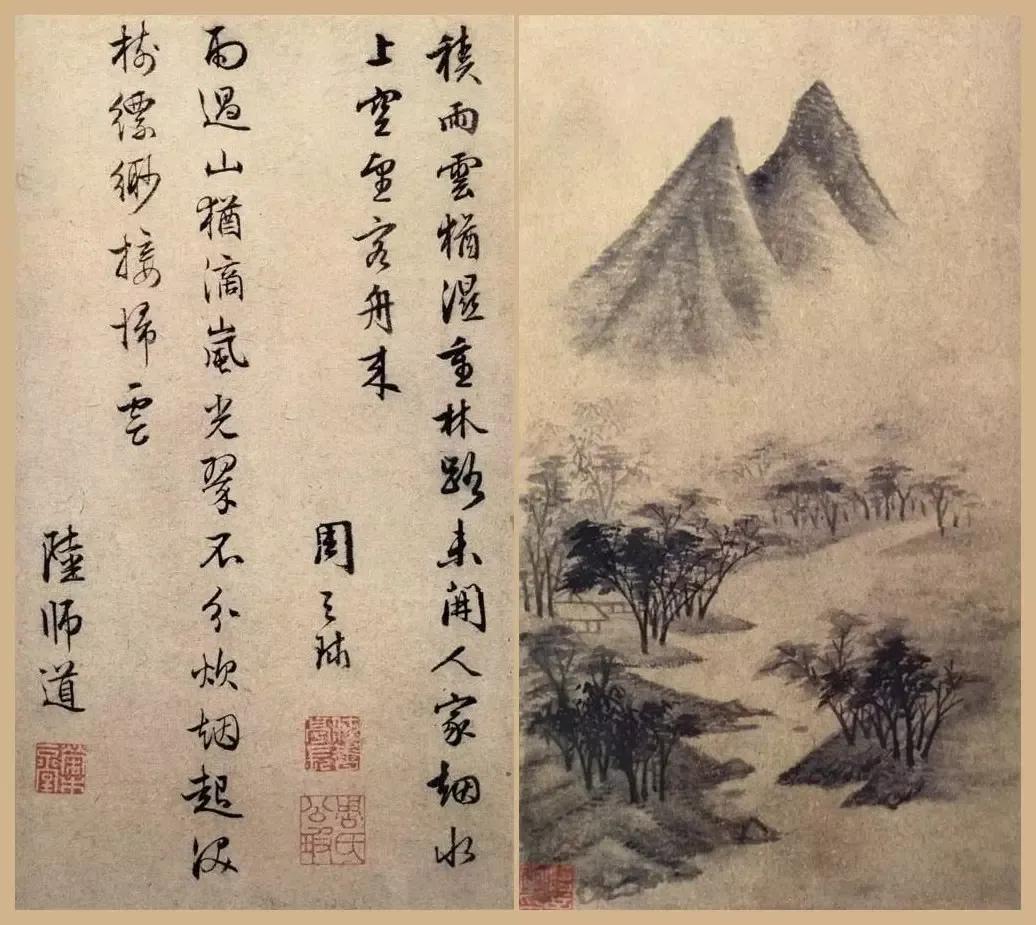 積雨雲猶濕重林路未開人家烟水
上空望客舟來
周天球
周氏公瑕
雨過山猶滴嵐光翠不分炊烟起深
樹縹緲接歸雲
陸師道